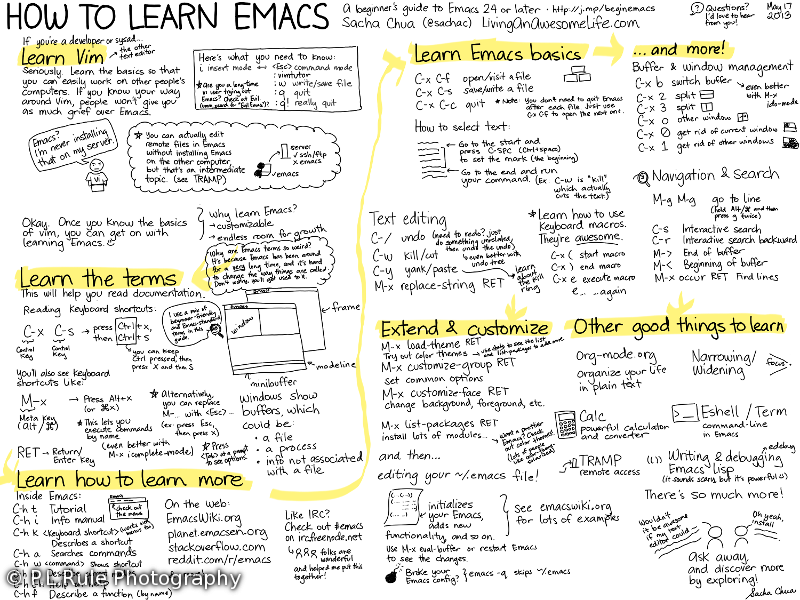 HOW TO LEARN EMACS
A beginner's guide to Emacs 24 or later - http://j.mp/beginemacs
Sacha Chua (@sachac) LivingAnAwesomeLife.com
Questions?
I'd love to hear
from you!
May 17
2013
If you're a developer or sysad...
Learn Vim
the other
text editor
Seriously. Learn the basics so that
you can easily work on other people's
computers. If you know your way
around Vim, people won't give you
as much grief over Emacs.
Here's what you need to know:
i insert mode <Esc> command mode
:vimtutor
:w write/save file
:q quit
:q! really quit
Emacs?
I'm never installing
that on my server!
Vi
You can actually edit
remote files in Emacs
without installing Emacs
on the other computer,
but that's an intermediate
topic. (see TRAMP)
server
✓ ssh/ftp
x emacs
✓emacs
Okay. Once you know the basics
of vim, you can get on with
learning Emacs.
why learn Emacs?
→ customizable
→ endless room for growth
Why are Emacs terms so weird?
It's because Emacs has been around
for a very long time, and it's hard
to change the way things are called.
Don't worry, you'll get used to it.
Learn the terms
This will help you read documentation.
Reading keyboard shortcuts:
C-x C-s → press Ctrl+x,
then Ctrl+s
Control
Key
Control
Key
you can keep
Ctrl pressed, then
press X and then S
I use a mix of
beginner-friendly
and Emacs-standard
terms in this
guide.
Emacs
window
frame
modeline
minibuffer
You'll also see keyboard
shortcuts like:
M-x → Press Alt+x
(or ⌘x)
Meta Key
(alt/⌘)
This lets you
execute commands
by name
Alternatively,
you can replace
M-... with <Esc>...
(ex: press Esc,
then press x)
RET → Return/
Enter Key
(even better with
M-x icomplete-mode)
Press
Tab at a prompt
to see options.
windows show
buffers, which
could be:
• a file
• a process
• info not associated
with a file
Learn how to learn more
Inside Emacs:
C-h t Tutorial
check out
the menu
C-h i Info manual
C-h k <keyboard shortcut>
Describes a shortcut
C-h a Searches commands
C-h w <command> Shows shortcut
C-h f Describe a function (by name)
On the web:
EmacsWiki.org
planet.emacsen.org
stackoverflow.com
reddit.com/r/emacs
Like IRC?
Check out #emacs
on irc.freenode.net
folks are
wonderful
and helped me put this
together!
Learn Emacs basics
C-x C-f open/visit a file
C-x C-s save/write a file
C-x C-c quit
Note: You don't need to quit Emacs
after each file. Just use
C-x C-f to open the next one.
How to select text:
Go to the start and
press C-SPC (Ctrl+space)
to set the mark (the beginning)
Go to the end and run
your command. (Ex C-w is "kill"
which actually
cuts the text.)
Text editing
C-/ undo (need to redo? just
do something unrelated,
then undo the undo)
even better with
undo-tree
C-w kill/cut
C-y yank/paste
learn
about the
kill
ring
M-x replace-string RET
Learn how to use
keyboard macros.
They're awesome.
C-x ( start macro
C-x ) end macro
C-x e execute macro
e... ...again
... and more!
Buffer & window management
C-x b switch buffer
even better
with M-x
ido-mode
C-x 2 split
C-x 3 split
C-x o other window
C-x 0 get rid of current window
C-x 1 get rid of other windows
Navigation & Search
M-g M-g go to line
(hold Alt/⌘ and then
press g twice)
C-s Interactive search
C-r Interactive search backward
M-> End of buffer
M-< Beginning of buffer
M-x occur RET Find lines
Extend & customize
M-x load-theme RET
Try out color themes
M-x customize-group RET
set common options
M-x customize-face RET
change background, foreground, etc.
M-x list-packages RET
install lots of modules...
and then...
editing your ~/.emacs file!
initializes
your Emacs,
adds new
functionality, and so on.
see emacswiki.org
for lots of examples
Use M-x eval-buffer or restart Emacs
to see the changes.
Broke your
Emacs config?
emacs -q skips ~/.emacs
Other good things to learn
Org-mode.org
organize your life
in plain text
Narrowing/
Widening
focus.
Calc
powerful calculator
and converter
Eshell / Term
command-line
in Emacs
TRAMP
remote access
Writing & debugging
edebug
Emacs Lisp
(it sounds scary, but it's powerful)
There's so much more!
Wouldn't
it be awesome
if my text
editor could
Oh yeah,
install
Ask away,
and discover more
by exploring!
Sacha Chua
© P.L.Rule Photography